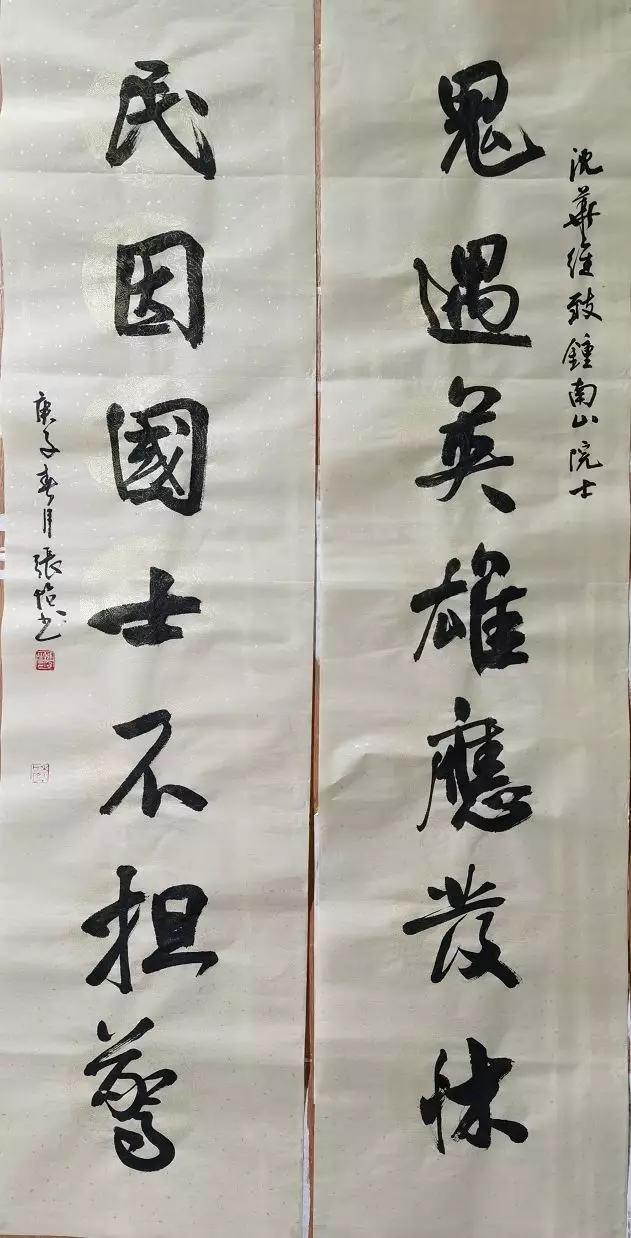 沈華維致鍾南山院士
鬼遇英雄應發怵
民因國士不担驚
庚子春月張書